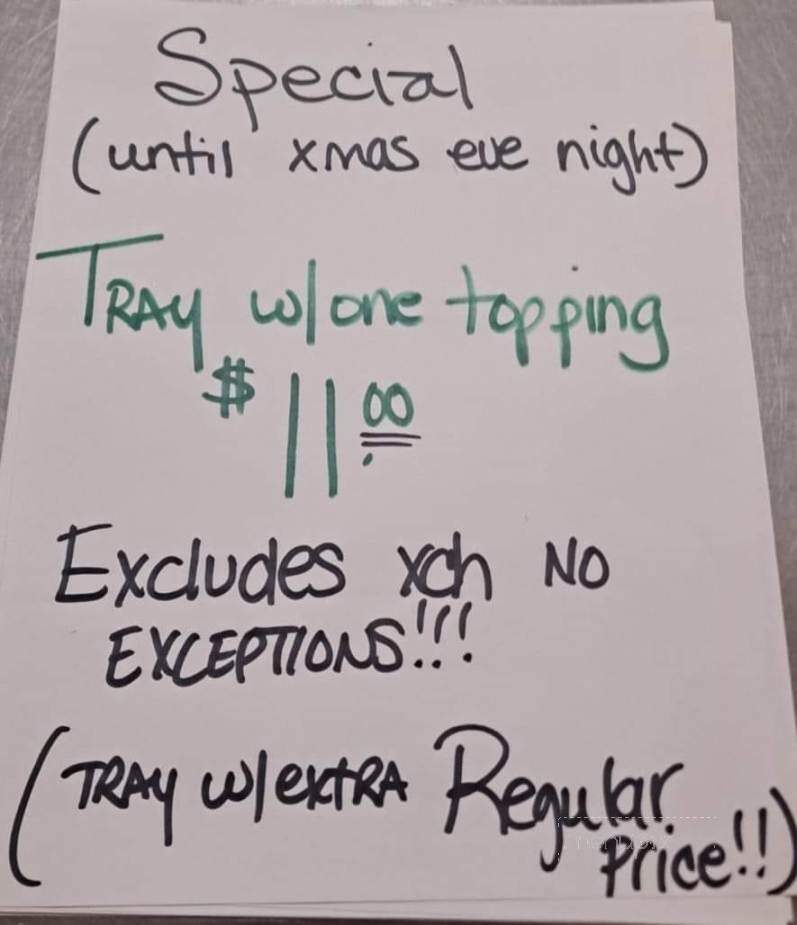 Special
(until xmas eve night)
TRAY w/one topping
$11.00
Excludes xch NO
EXCEPTIONS!!!
(TRAY w/extRA Regular
Price!!)